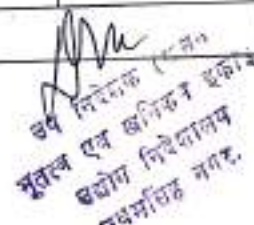 उप निदेशक
भूतत्व एवं खनिकर्म इकाई
उद्योग निदेशालय
उधमसिंह नगर.